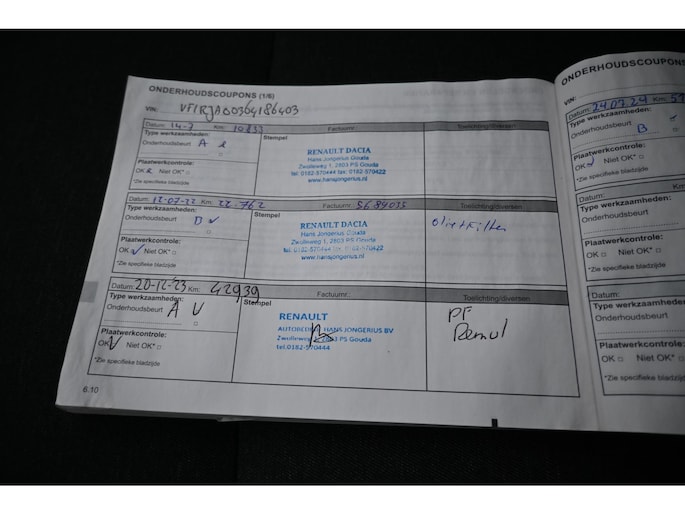 ONDERHOUDSCOUPONS (1/6)
VIN: VF1RJA00364186403
Datum: 14-7 Km:
Type werkzaamheden:
Onderhoudsbeurt A
Plaatwerkcontrole:
OK Niet OK*
*Zie specifieke bladzijde
Stempel
Factuurnr.:
Toelichting/diversen
RENAULT DACIA
Hans Jongerius Gouda
Zwolleweg 1, 2803 PS Gouda
tel. 0182-570444 fax: 0182-570422
www.hansjongerius.nl
Datum: 12-07-22 Km: 22.762
Type werkzaamheden:
Onderhoudsbeurt
Plaatwerkcontrole:
OK Niet OK*
*Zie specifieke bladzijde
Stempel
Factuurnr.: 5684035
Toelichting/diversen
RENAULT DACIA
Hans Jongerius Gouda
Zwolleweg 1, 2803 PS Gouda
tel. 0182-570444 fax: 0182-570422
www.hansjongerius.nl
Datum: 20-12-23 Km: 42939
Type werkzaamheden:
Onderhoudsbeurt A
Plaatwerkcontrole:
OK Niet OK*
*Zie specifieke bladzijde
Stempel
Factuurnr.:
Toelichting/diversen
RENAULT
HANS JONGERIUS BV
Zwolleweg 2803 PS Gouda
tel.0182-570444
PF
6.10
ONDERHOUDSCOUPONS
VIN:
Datum: 24.07.24 Km:
Type werkzaamheden:
Onderhoudsbeurt B
Plaatwerkcontrole:
OK Niet OK*
*Zie specifieke bladzijde
Datum:
Type werkzaamheden:
Onderhoudsbeurt
Plaatwerkcontrole:
OK Niet OK*
*Zie specifieke bladzijde
Datum:
Type werkzaamheden:
Onderhoudsbeurt
Plaatwerkcontrole:
OK Niet OK*
*Zie specifieke bladzijde